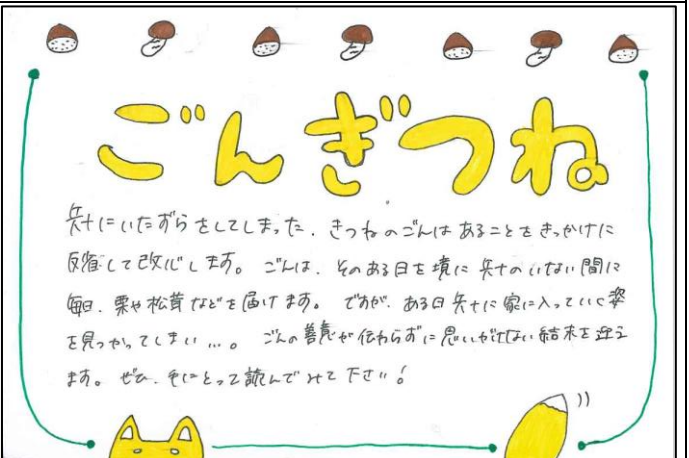 ごんぎつね
兵十にいたずらをしてしまった、きつねのごんはあることをきっかけに
反省して改心します。ごんは、そのある日を境に兵十のいない間に
毎日、栗や松茸などを届けます。ですが、ある日兵十に家に入っていく姿
を見つかってしまい…。ごんの善意が伝わらずに思いがけない結末を迎え
ます。ぜひ、手にとって読んでみて下さい!